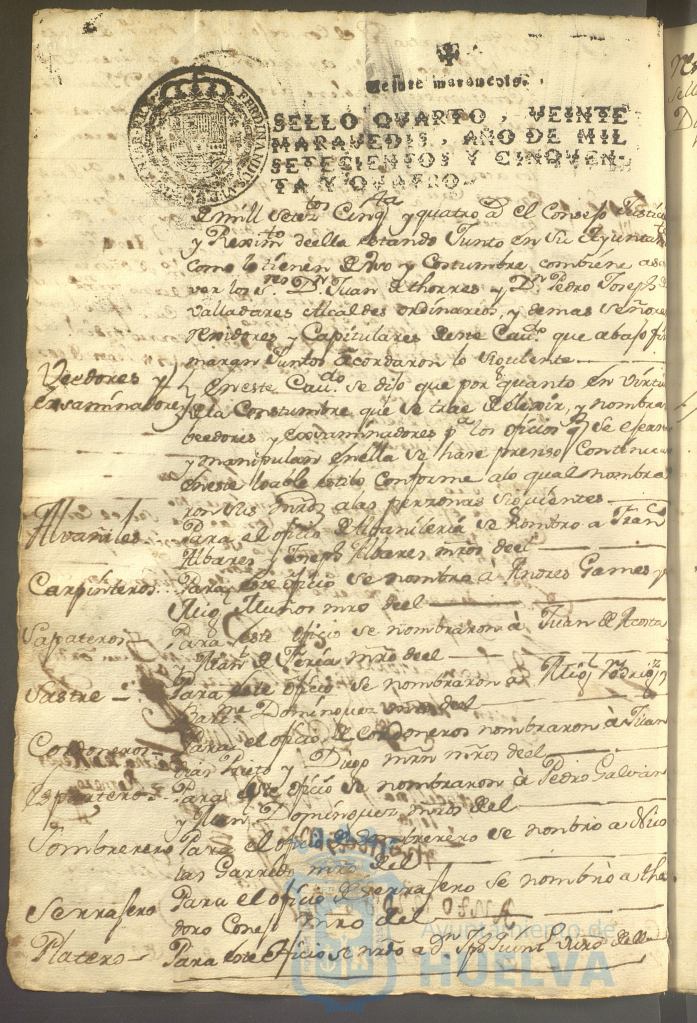 Veinte maravedis.
SELLO QVARTO, VEINTE
MARAVEDIS, AÑO DE MIL
SETECIENTOS Y CINQVEN-
TA Y QVATRO.
mill setez.tos Cinq.ta y quatro el Consejo Justicia
y Reximto. deella estando Junto en su Ayuntam
como lo tienen de Uso y Costumbre, combiene a sa
ver los s.res D.n Juan de thorres y D.n Pedro Joseph de
valladares Alcaldes ordinarios, y demas señores
Rexidores y Capitulares deste Cau.do que abajo fir
maran Juntos acordaron lo siguiente
Veedores y
ensaminadores
En este Cau.do se dijo que por quanto en virtu
de la Constumbre que se trae de elexir, y nombrar
beedores y examinadores p.a los oficios q.e se ejersen
y manipulan en ella se hase presiso Continuar
en este loable estilo Conforme alo qual nombra
ron sus mrds. a las personas siguientes
Alvañiles
Para el oficio de Albañileria se nombro a Fran.co
Albares y Joseph Albares mros deel
Carpinteros
Para este oficio se nombro à Andres Games y
Mig.l Muños mro deel
Sapateros
Para este oficio se nombraron à Juan de Acosta
y Man.l de Feria mro deel
Sastre
Para este oficio se nombraron à Mig.l Rodrig.z
Bar.me Dominguez mros del
Cordoneros
Para el oficio de Cordoneros nombraron à Juan
dias Prieto y Diego mrn mros deel
Para este oficio se nombraron à Pedro Galvan
y Man.l Dominguez mros del
Sombrerero
Para el oficio de Sombrerero se nombrò a Nico
las Garrido mro del
Serrajero
Para el oficio de serrajero se nombrò a theo
doro mro del
Platero
Para este oficio se nro a D.n
Ayuntamiento de
HUELVA